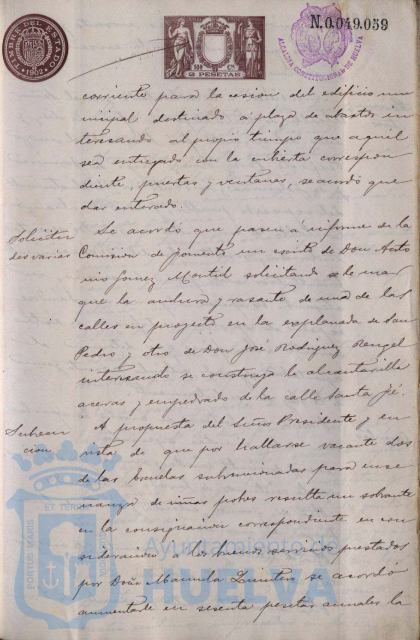 TIMBRE DEL ESTADO
1902
2 PESETAS
N.0.049.059
ALCALDIA CONSTITUCIONAL DE HUELVA
corriente para la cesion del edificio mu
nicipal destinado á plaza de abastos in
teresando al propio tiempo que aquel
sea entregado con la cubierta correspon
diente, puertas y ventanas, se acordó que
dar enterado.
Solicitu
des varias
Se acordó que pasen á informe de la
Comision de fomento un escrito de Don Anto
nio Gomez Montiel solicitando se le mar
que la anchura y rasante de una de las
calles en proyecto en la explanada de San
Pedro y otro de Don José Rodriguez Rengel
interesando se construya la alcantarilla
aceras y empedrado de la calle Santa Fé.
Subven
cion
A propuesta del Señor Presidente y en
vista de que por hallarse vacante dos
de las Escuelas subvencionadas para ense
ñanza de niñas pobres resulta un sobrante
en la consignacion correspondiente en con
sideracion á los buenos servicios prestados
por Doña Manuela se acordó
aumentarle en sesenta pesetas anuales la
PORTUS MARIS ET TERRAE CUSTODIA
Ayuntamiento de
HUELVA